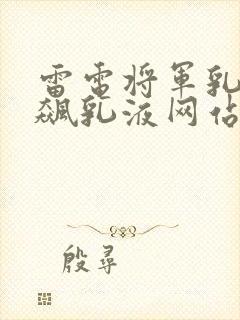 雷电将军乳
飙乳液网站
殷寻